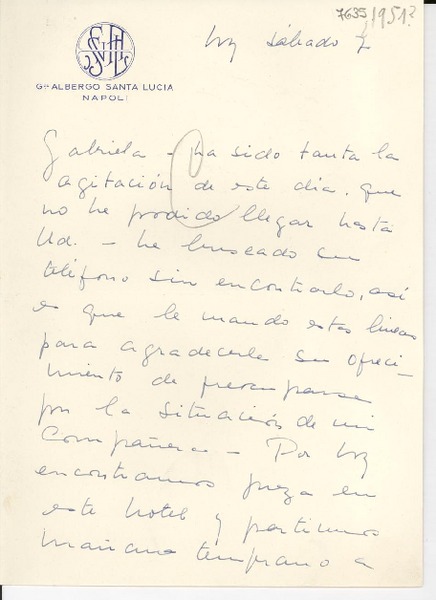 7635 1951?
Hoy sábado 7
Gn ALBERGO SANTA LUCIA
NAPOLI
Gabriela - ha sido tanta la
agitación de este día, que
no he podido llegar hasta
Ud. - he buscado su
teléfono sin encontrarlo, así
es que le mando estas líneas
para agradecerle su ofreci-
miento de preocuparse
por la situación de mi
Compañera - Por hoy
encontramos pieza en
este hotel y partimos
mañana temprano a